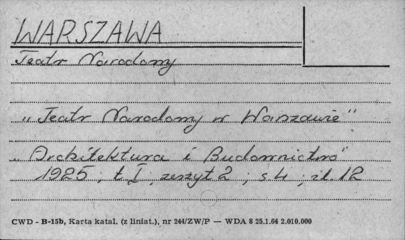 WARSZAWA
Teatr Narodowy
„Teatr Narodowy w Warszawie"
„Architektura i Budownictwo"
1925 ; t. I, zeszyt 2 ; s. 4 ; il. 12
CWD - B-15b, Karta katal. (z liniat.), nr 244/ZW/P — WDA 8 25.1.64 2.010.000